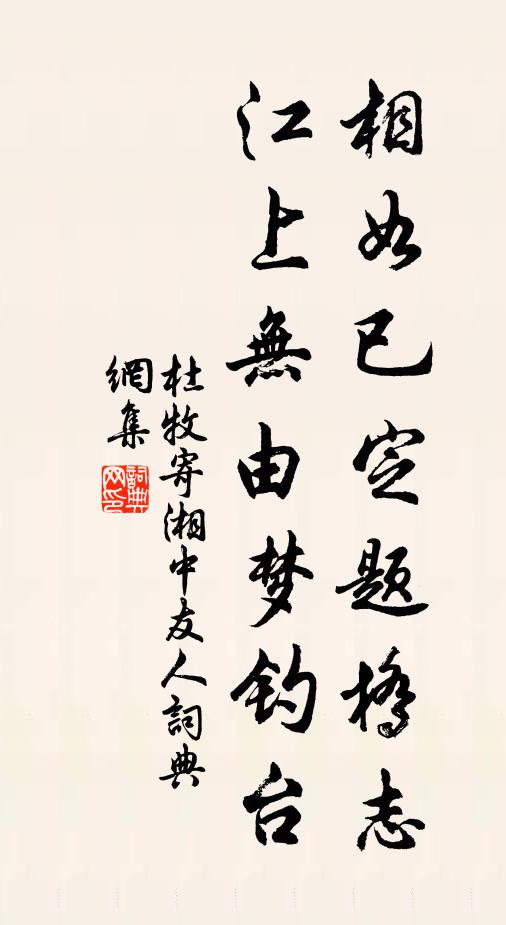 相如已定題橋志
江上無由梦钓台
杜牧寄湘中友人詞典
網集
詞典
网印